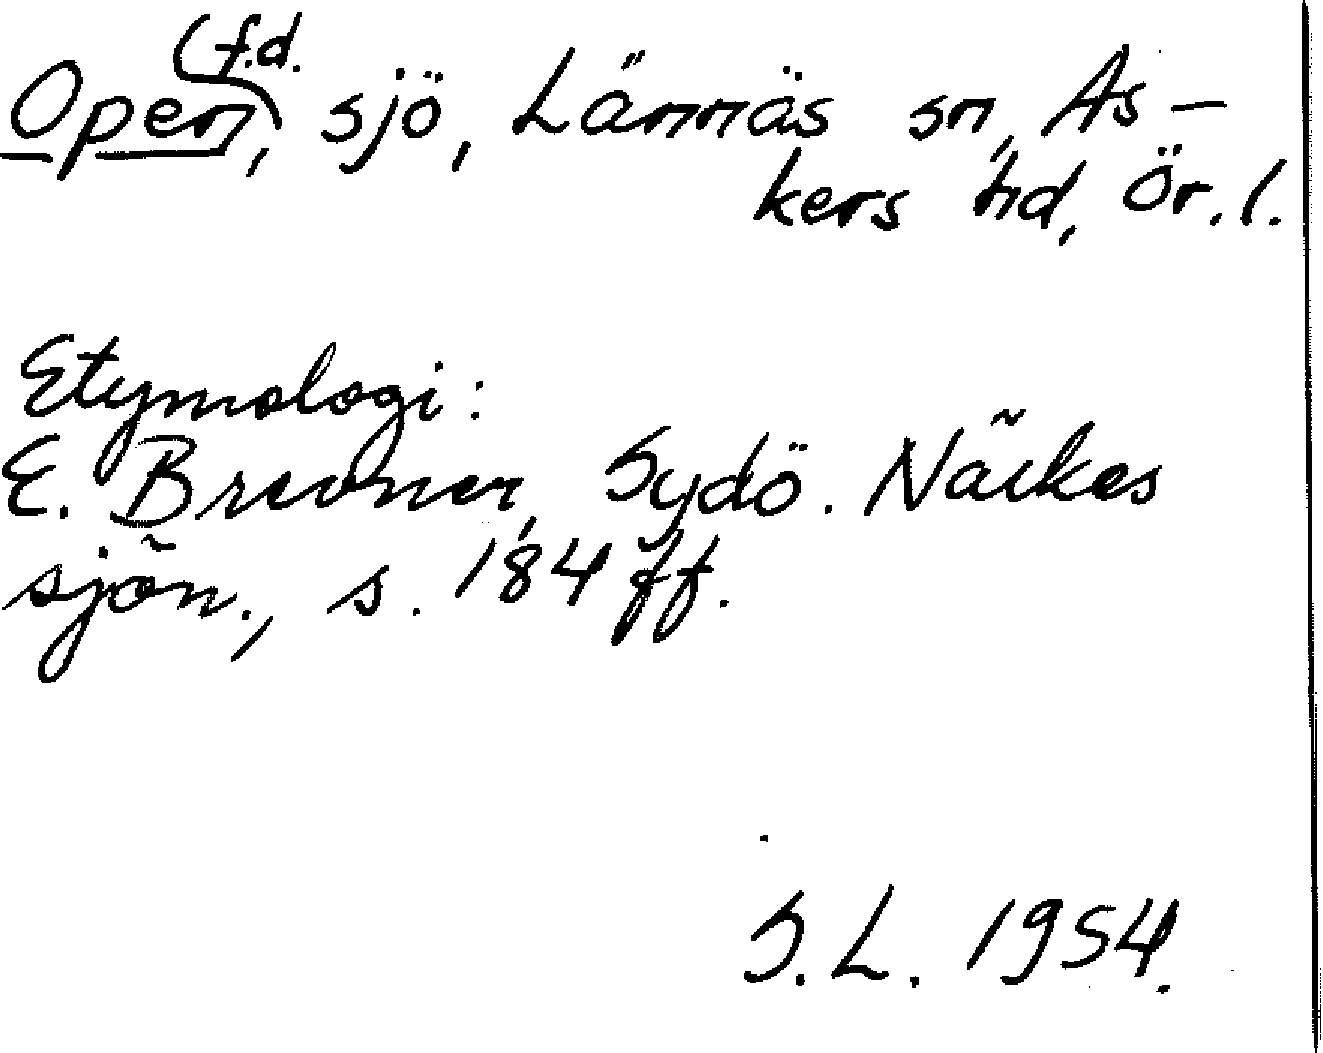 Open, (f.d. sjö, Lännäs sn, As-
kers hd, Ör. l.
Etymologi:
E. Brevner, Sydö. Närkes
sjön., s. 184 ff.
S. L. 1954.